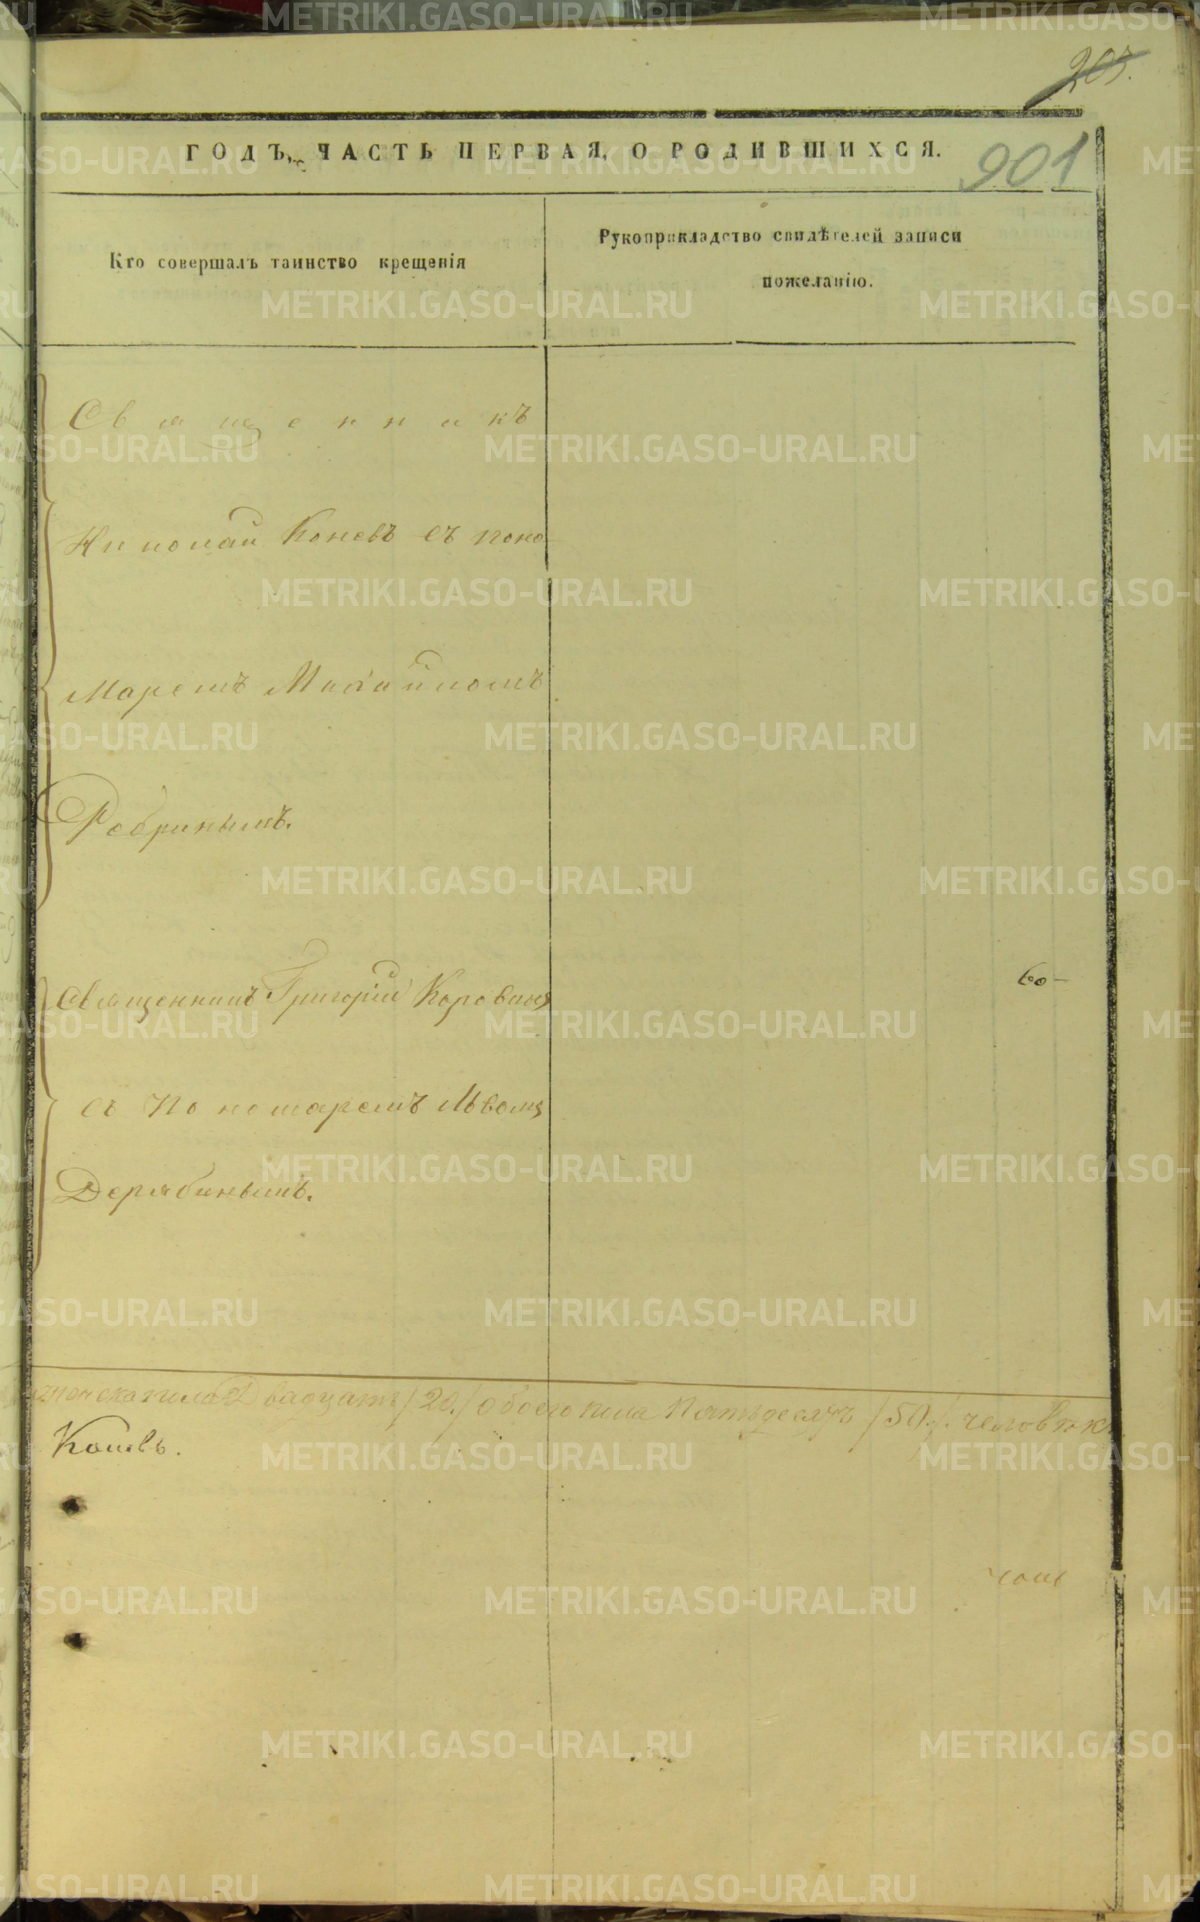 203.
ГОДЪ, ЧАСТЬ ПЕРВАЯ, О РОДИВШИХСЯ.
901
Кто совершалъ таинство крещенія
Рукоприкладство свидѣтелей записи
пожеланію.
Священникъ
Николай Коневъ съ поно
маремъ Михаиломъ
Ребринымъ.
Священникъ Григорій Коровинъ
60-
съ Пономаремъ Львомъ
Дерябинымъ.
женска пола Двадцать /20./ обоего пола Пятьдесятъ /50./ человѣкъ
METRIKI.GASO-URAL.RU